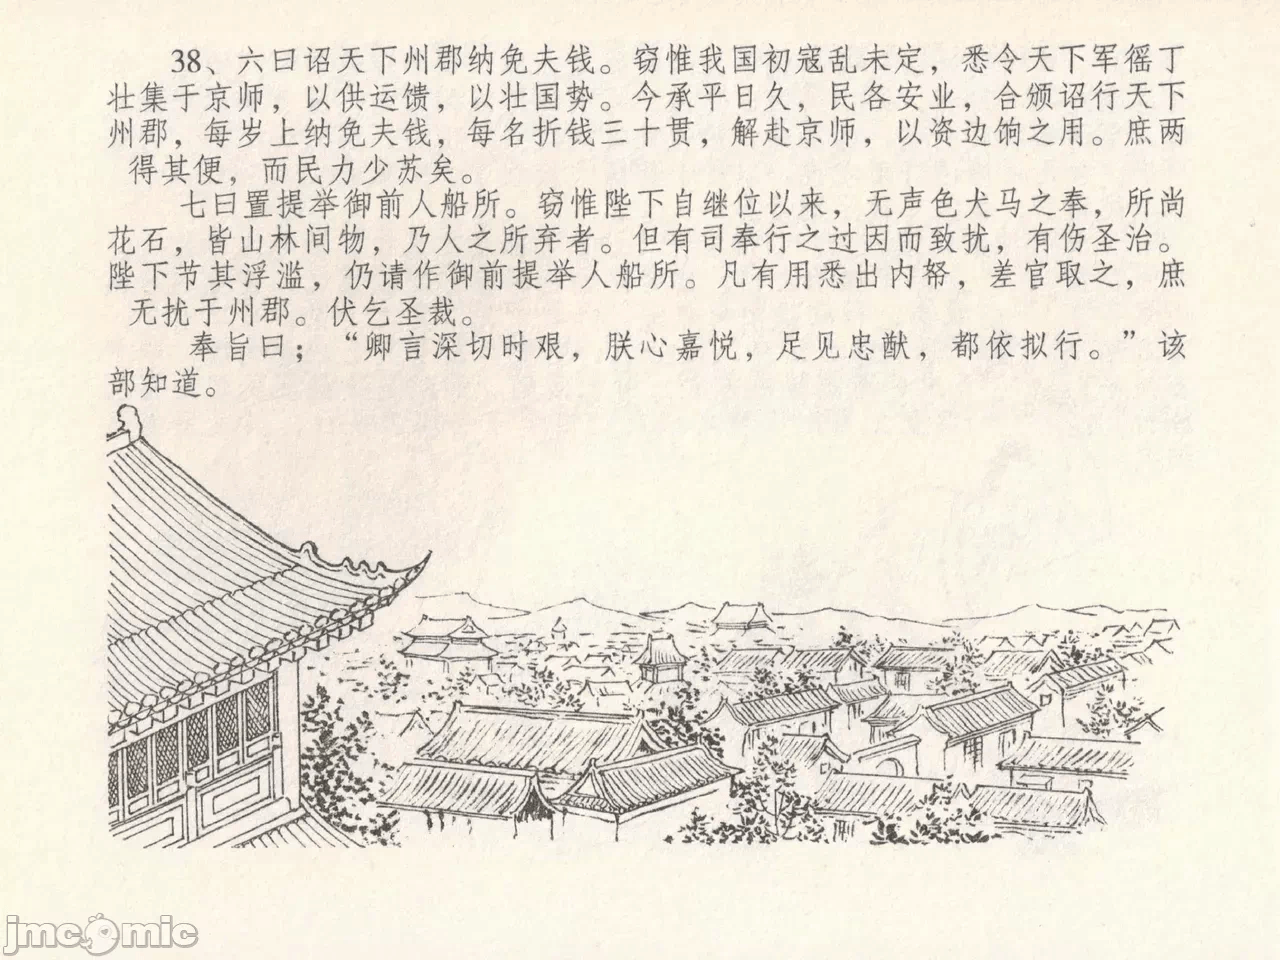 38、六曰诏天下州郡纳免夫钱。窃惟我国初寇乱未定，悉令天下军徭丁
壮集于京师，以供运馈，以壮国势。今承平日久，民各安业，合颁诏行天下
州郡，每岁上纳免夫钱，每名折钱三十贯，解赴京师，以资边饷之用。庶两
得其便，而民力少苏矣。
七曰置提举御前人船所。窃惟陛下自继位以来，无声色犬马之奉，所尚
花石，皆山林间物，乃人之所弃者。但有司奉行之过因而致扰，有伤圣治。
陛下节其浮滥，仍请作御前提举人船所。凡有用悉出内帑，差官取之，庶
无扰于州郡。伏乞圣裁。
奉旨曰；“卿言深切时艰，朕心嘉悦，足见忠猷，都依拟行。”该
部知道。
jmcomic